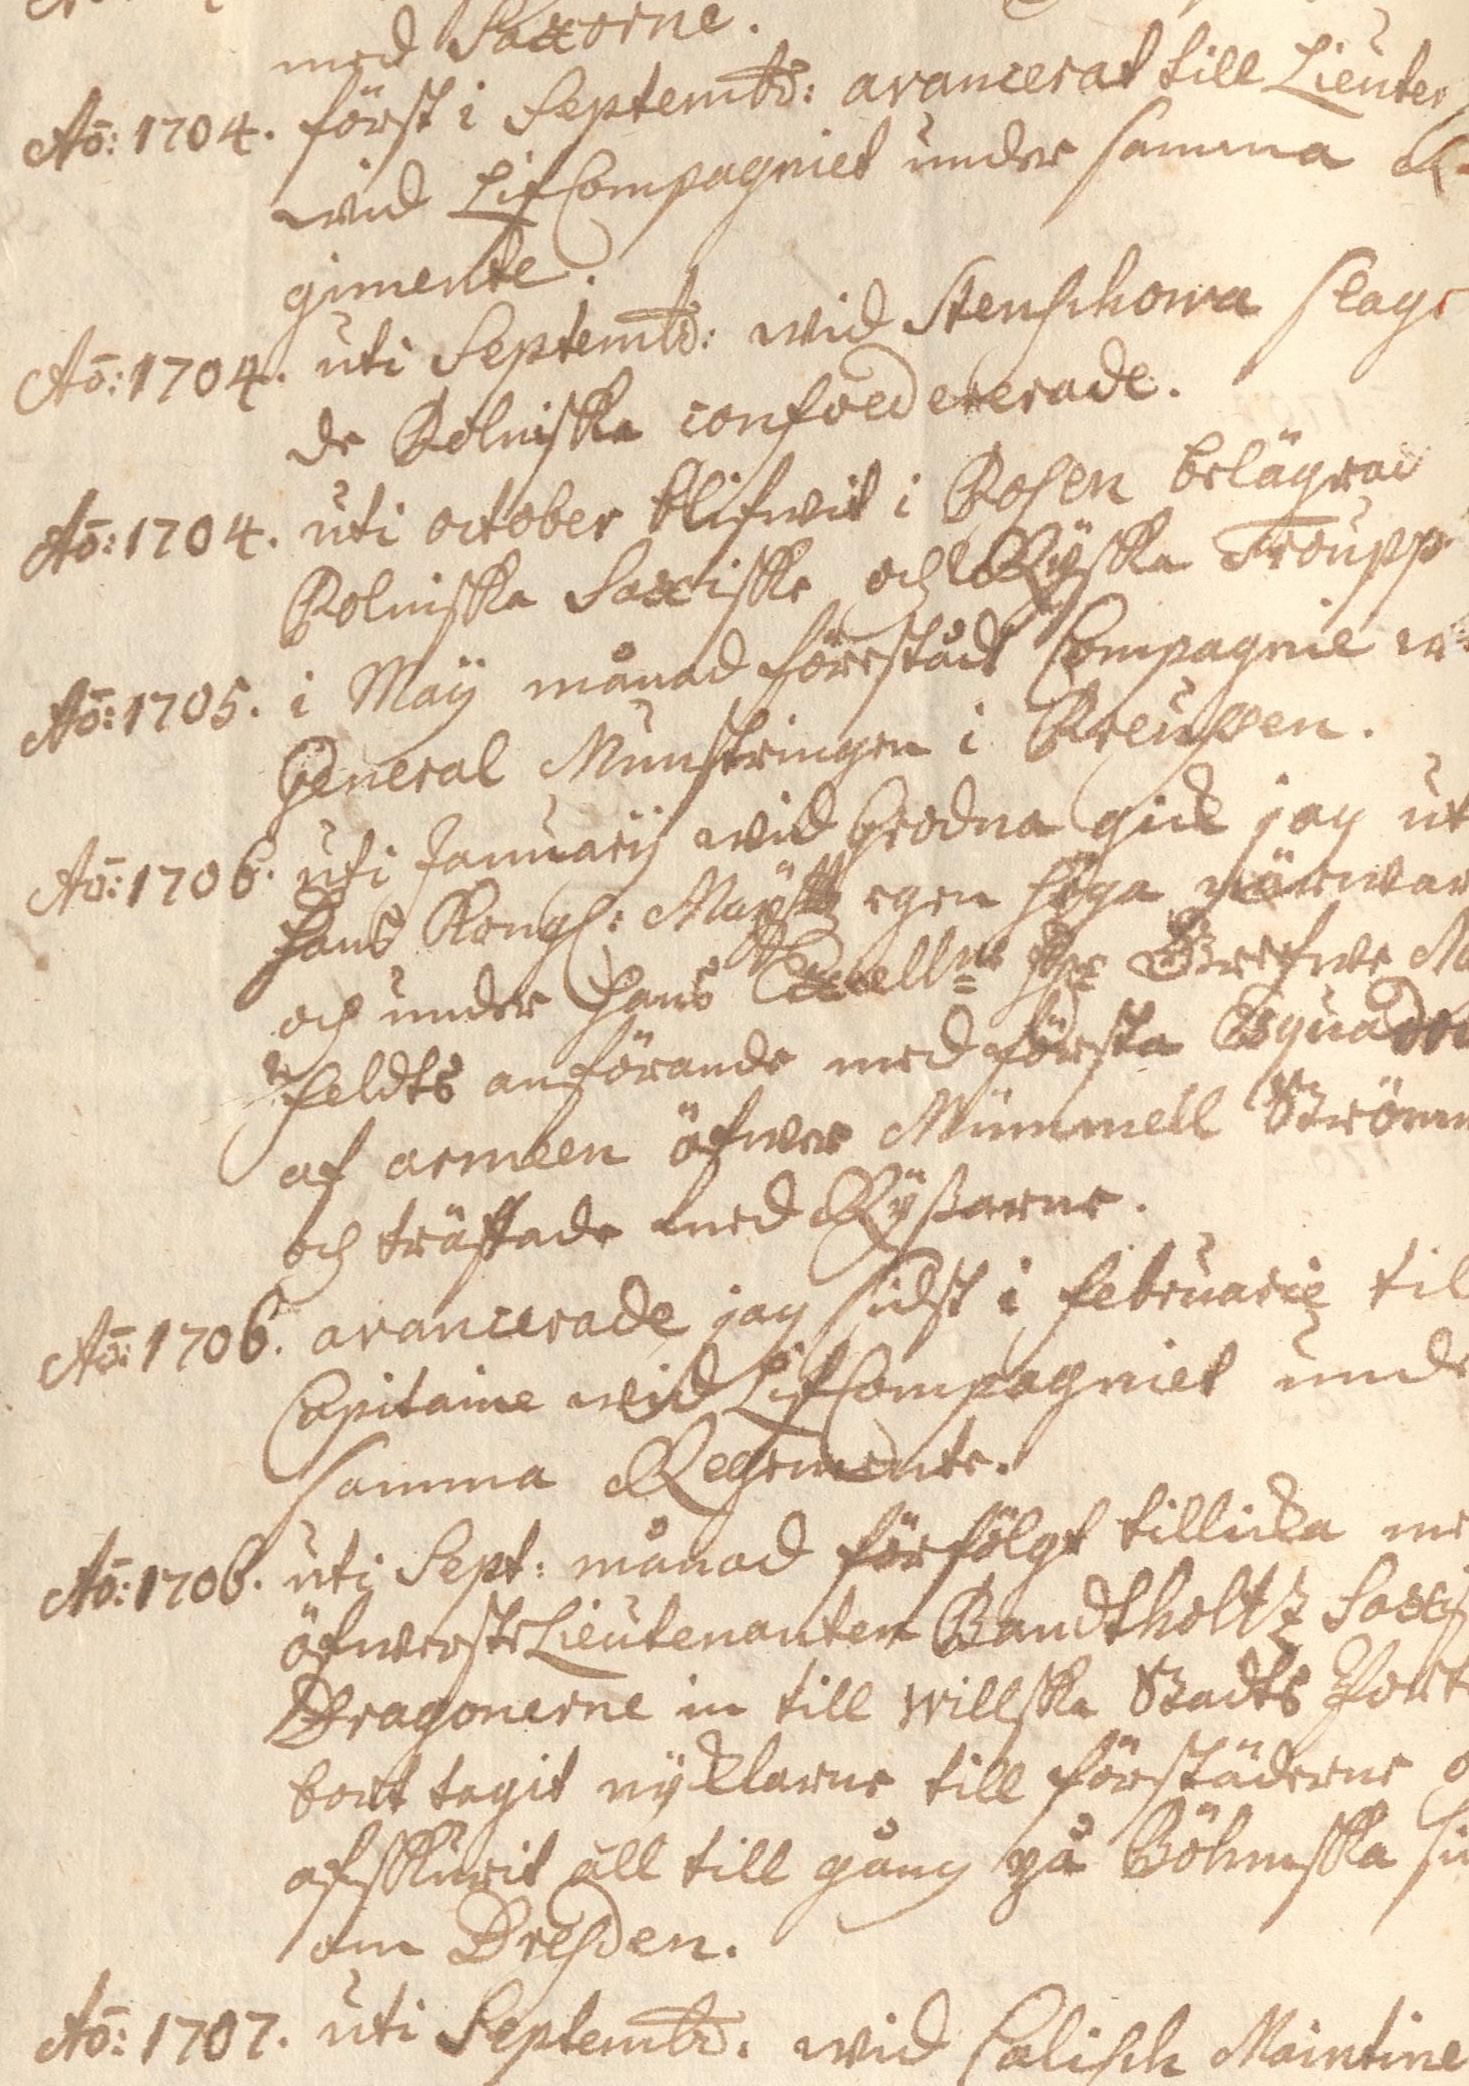 med Saxerne.
Aō: 1704. först i Septembr: avancerat till Lieuten
wid LifCompagniet under samma Re
gimente.
Aō: 1704. uti Septembr: wid Stenschowa slag
de Polniska confoedererade.
Aō: 1704. uti october blifwit i Posen belägrad
Polniska Saxiske och Ryska Troupp
Aō: 1705. i Maÿ månad förestådt Compagnie w
General Munstringen i Preussen.
Aō: 1706. uti Januarij wid Grodna gick jag ut
Hans Kongl: Maÿtts egen höga närwar
och under Hans Excellns Hr Grefwe M
feldts anförande med första Esquadr
af armeen öfwer Mümmell Ström
och träffade med Ryßarne.
Aō: 1706. avancerade jag sidst i februarii til
Capitaine wid LifCompagniet unde
samma Regemente.
Aō: 1706. uti Sept: månad förfölgt tillicka me
öfwerste Lieutenanten Bandtholtz Saxis
Dragonerne in till Willska Stadts Port
bort tagit nÿcklarne till förstäderne o
afskurit all till gång på Böhmska si
om Dresden.
Aō: 1707. uti Septembr. wid Calisch Maintine